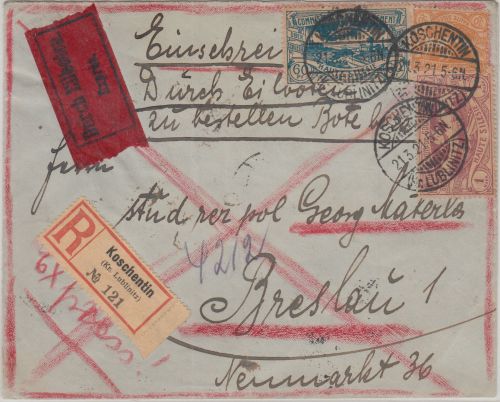 Einschreiben
Durch Eilboten
zu bestellen Bote b
Durch Eilboten
Exprès
COMM
60
KOSCHENTIN
21.3.21.5-6N
(Kr. LUBLINITZ)
KOSCHENTIN
21.3.21.5-6N
(Kr. LUBLINITZ)
1
Herrn
Stud rer pol Georg Materla
4212
R
Koschentin
(Kr. Lublinitz)
№ 121
Breslau 1
Neumarkt 36